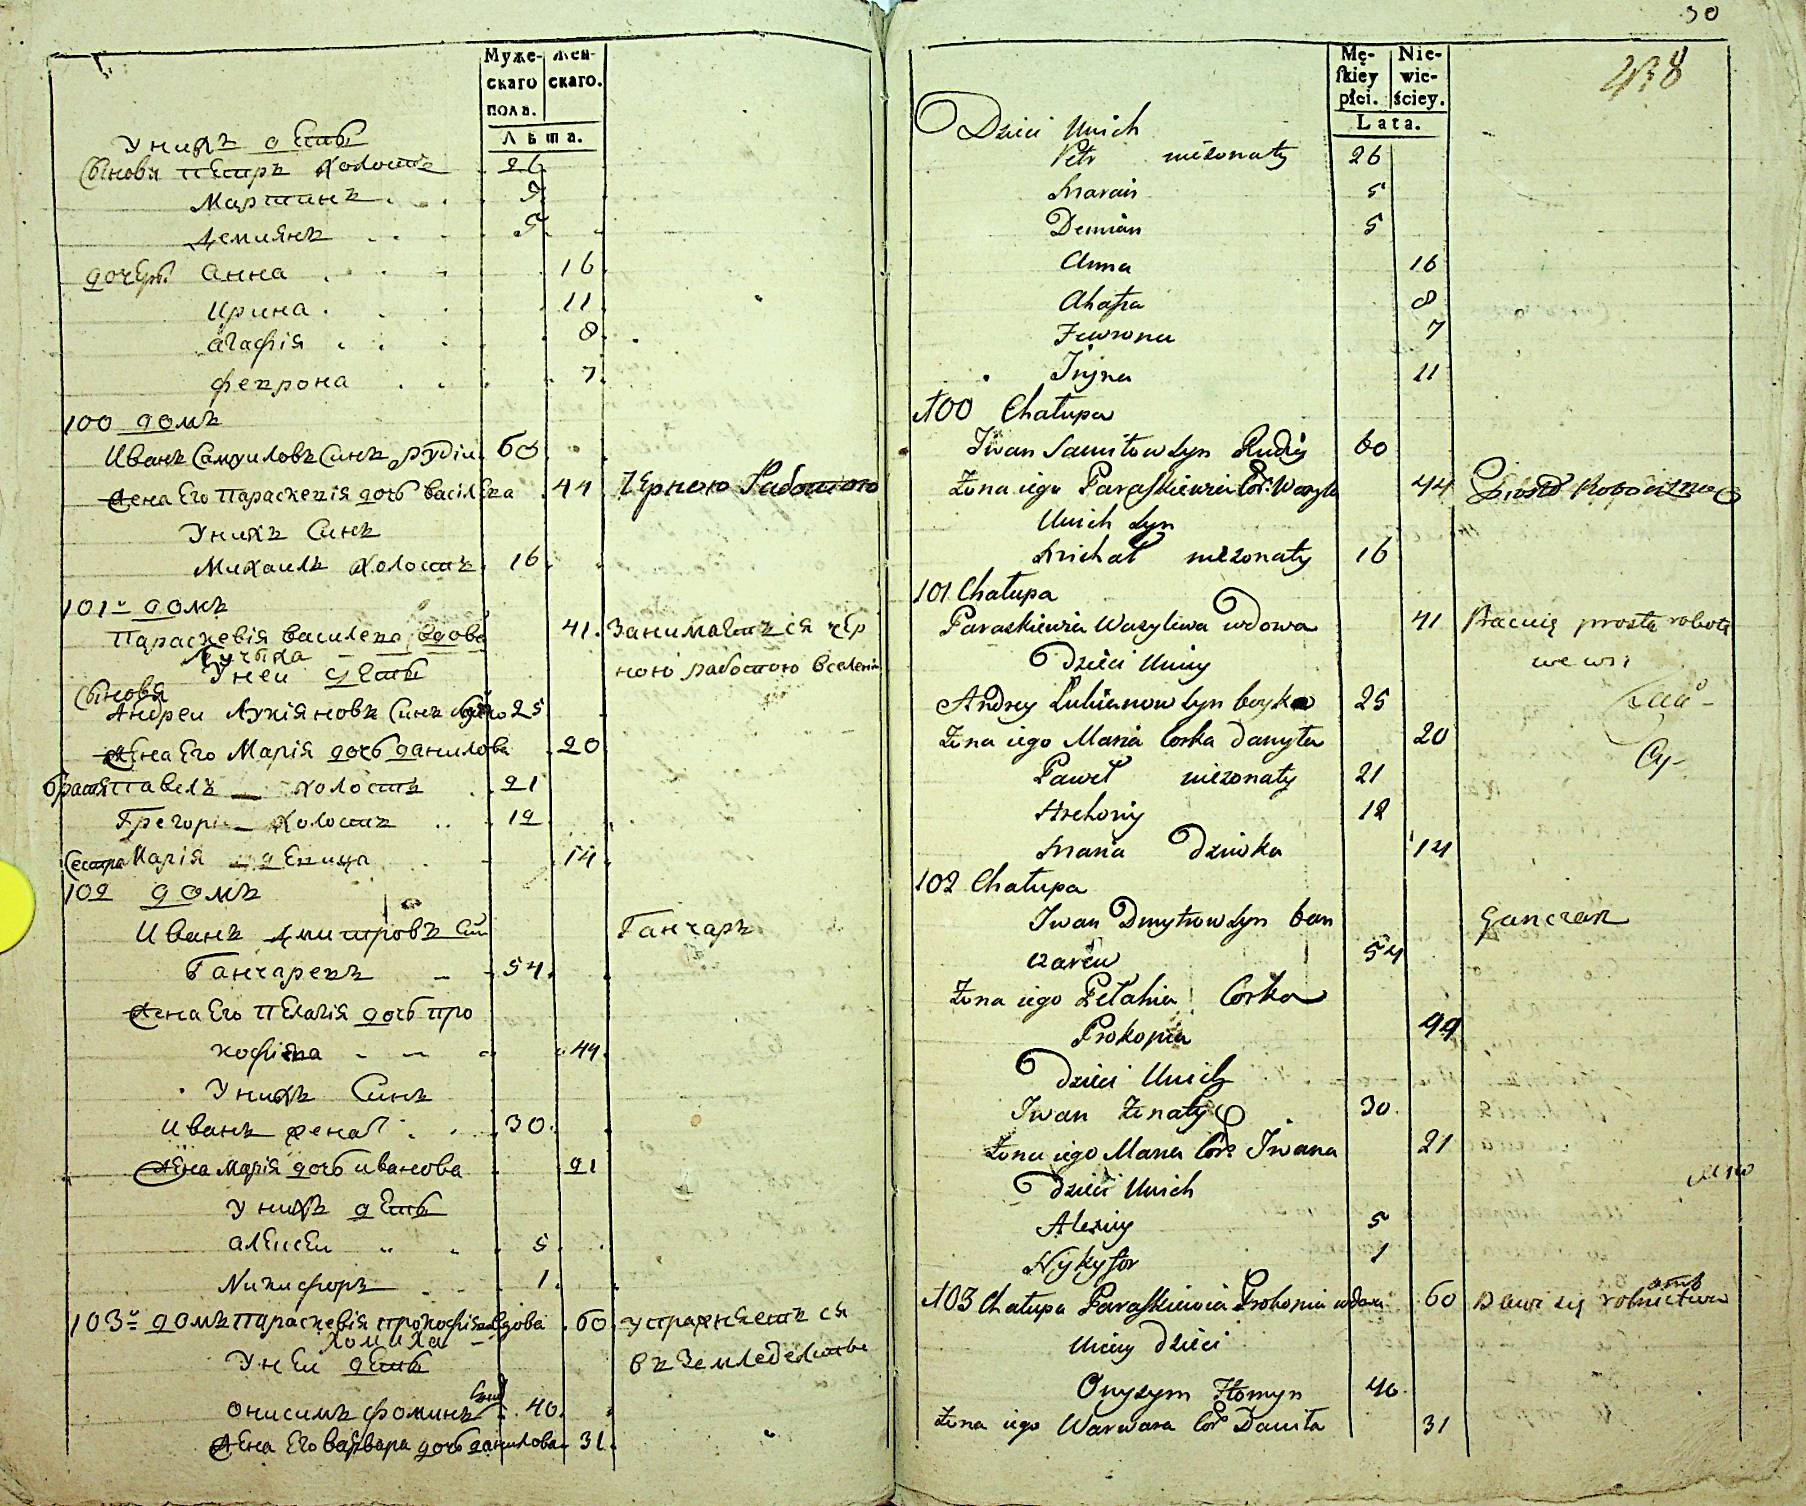 Муже-
скаго
пола.
Жен-
скаго.
Лѣта.
У нихъ дети
Сыновя петръ холостъ 26
Мартинъ 5
Демиянъ 5
дочери Анна 16
Ирина 11
агафія 8
феврона 7
100 домъ
Иванъ Самуиловъ Синъ рудій 60
Жена Его параскевія дочь василева 44 черною Работою
У нихъ Синъ
Михаилъ холостъ 16
101й домъ
параскевія василева вдова 41 Занимается чер
Лучиха
У неи дети ною работою вселении
Сыновя
Андреи Лукіяновъ Синъ 25
Жена Его Марія дочь данилова 20
братя павелъ холостъ 21
Грегори холостъ 12
Сестра Марія девица 14
102 домъ
Иванъ Дмитровъ Син Ганчаръ
Ганчаревъ 54
Жена Его пелагія дочь про
кофіева 44
У нихъ Синъ
Иванъ женат 30
Жена Марія дочь иванова 21
У нихъ дети
алексеи 5
Никифоръ 1
103й домъ параскевія прокофіева вдова 60 упражняется
хомиха
У неи дети въ земледелстве
онисимъ фоминъ Синъ 40
Жена Его варвара дочь данилова 31
30
438
Mę-
skiey
płci.
Nie-
wie-
ściey.
Lata.
Dzieci Unich
Petr niezonaty 26
Marcin 5
Demian 5
Anna 16
Ahafia 8
Fewrona 7
Iryna 11
100 Chałupa
Iwan Samiłow Syn Rudiy 60
Zona iego Paraskiewia Cor. Wasyla 44 Prostą Robocizną
Unich Syn
Michał niezonaty 16
101 Chałupa
Paraskiewia Wasyliwa wdowa 41 Pracuię prostą robotą
Dzieci Uniey we wsi
Andrey Lukianow Syn boyko 25
Zona iego Maria Corka Danyła 20
Paweł niezonaty 21
Hrehory 12
Maria Dziwka 14
102 Chałupa
Iwan Dmytrow Syn han Ganczar
czarew 54
Zona iego Pełahia Corka
Prokopia 44
Dzieci Unich
Iwan Zonaty 30
Zona iego Maria Cor. Iwana 21
Dzieci Unich
Alexiy 5
Nykyfor 1
103 Chałupa Paraskiewia Prokopia wdowa 60 Bawi się rolnictwem
Uniey dzieci
Onysym Homyn 40
Zona iego Warwara Cor Daniła 31